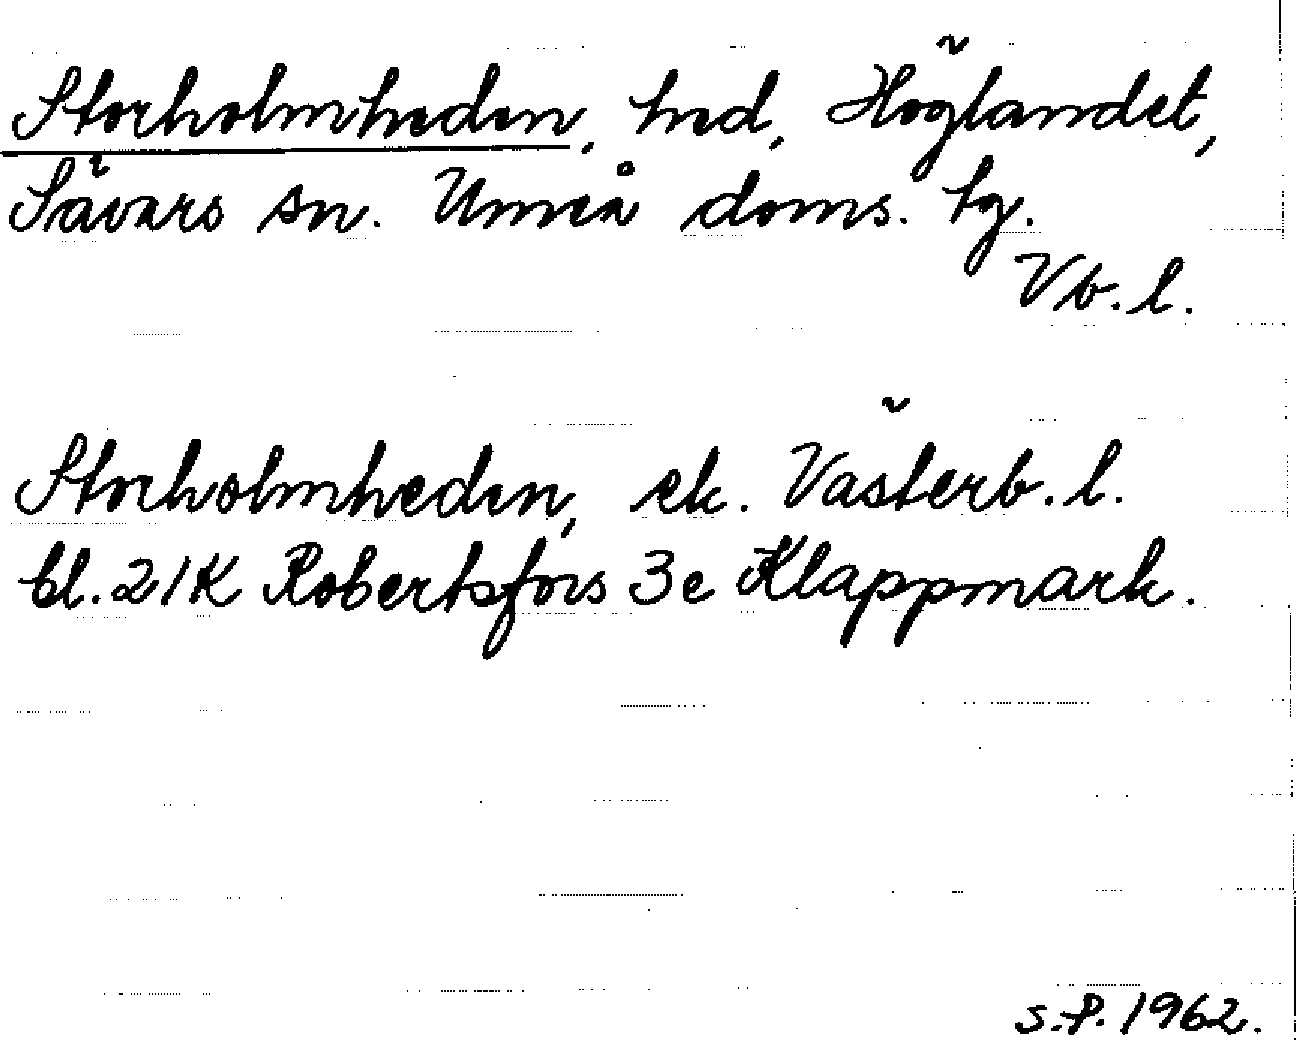 Storholmheden, hed, Höglandet,
Sävars sn. Umeå doms. tg.
Vb. l.
Storholmheden, ek. Västerb. l.
bl. 21K Robertsfors 3e Klappmark.
S.P. 1962.